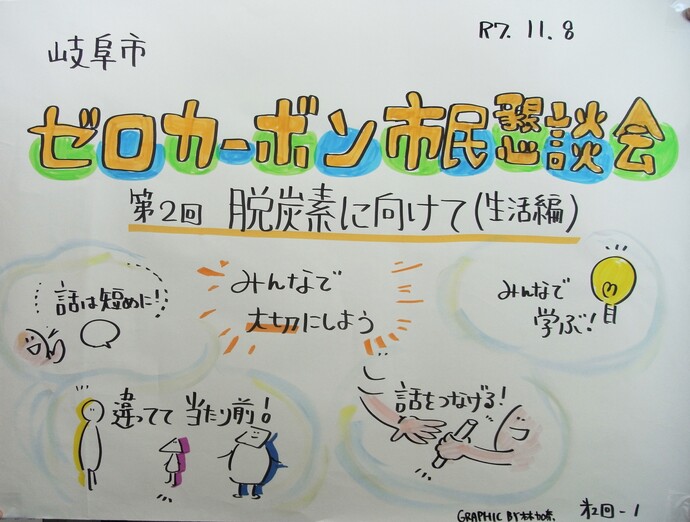 岐阜市
R7. 11. 8
ゼロカーボン市民懇談会
第2回 脱炭素に向けて(生活編)
話は短めに!
みんなで
大切にしよう
みんなで
学ぶ!
違ってて 当たり前!
話をつなげる!
GRAPHIC BY
第2回-1